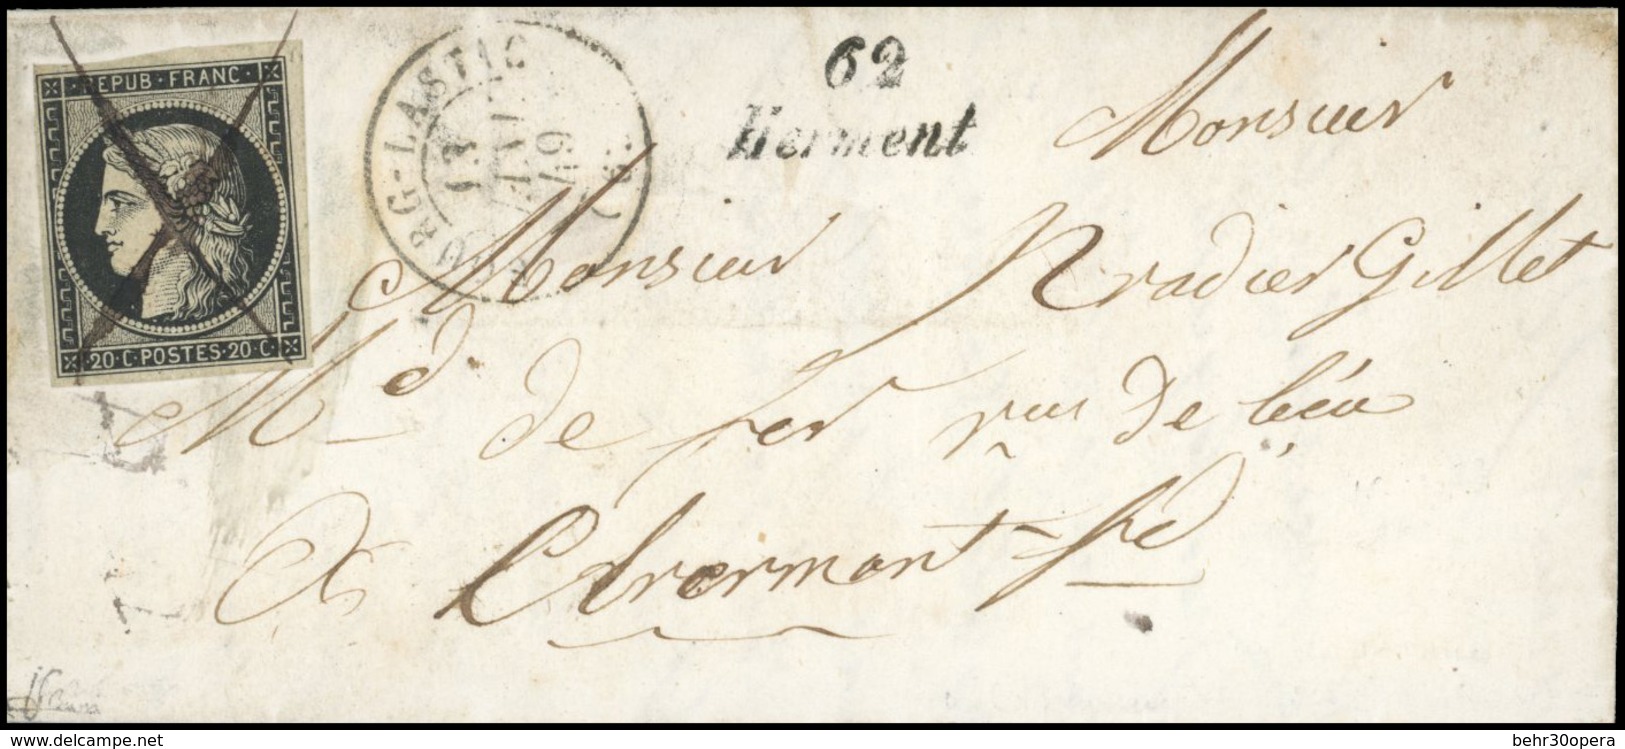 REPUB·FRANC·
20·C·POSTES·20·C·
BOURG-LASTIC
17
JANV.
49
62
Herment
Monsieur
Monsieur Nradier Gillet
Md de fer rue De
A Clermont-fd
delcampe.net
behr30opera